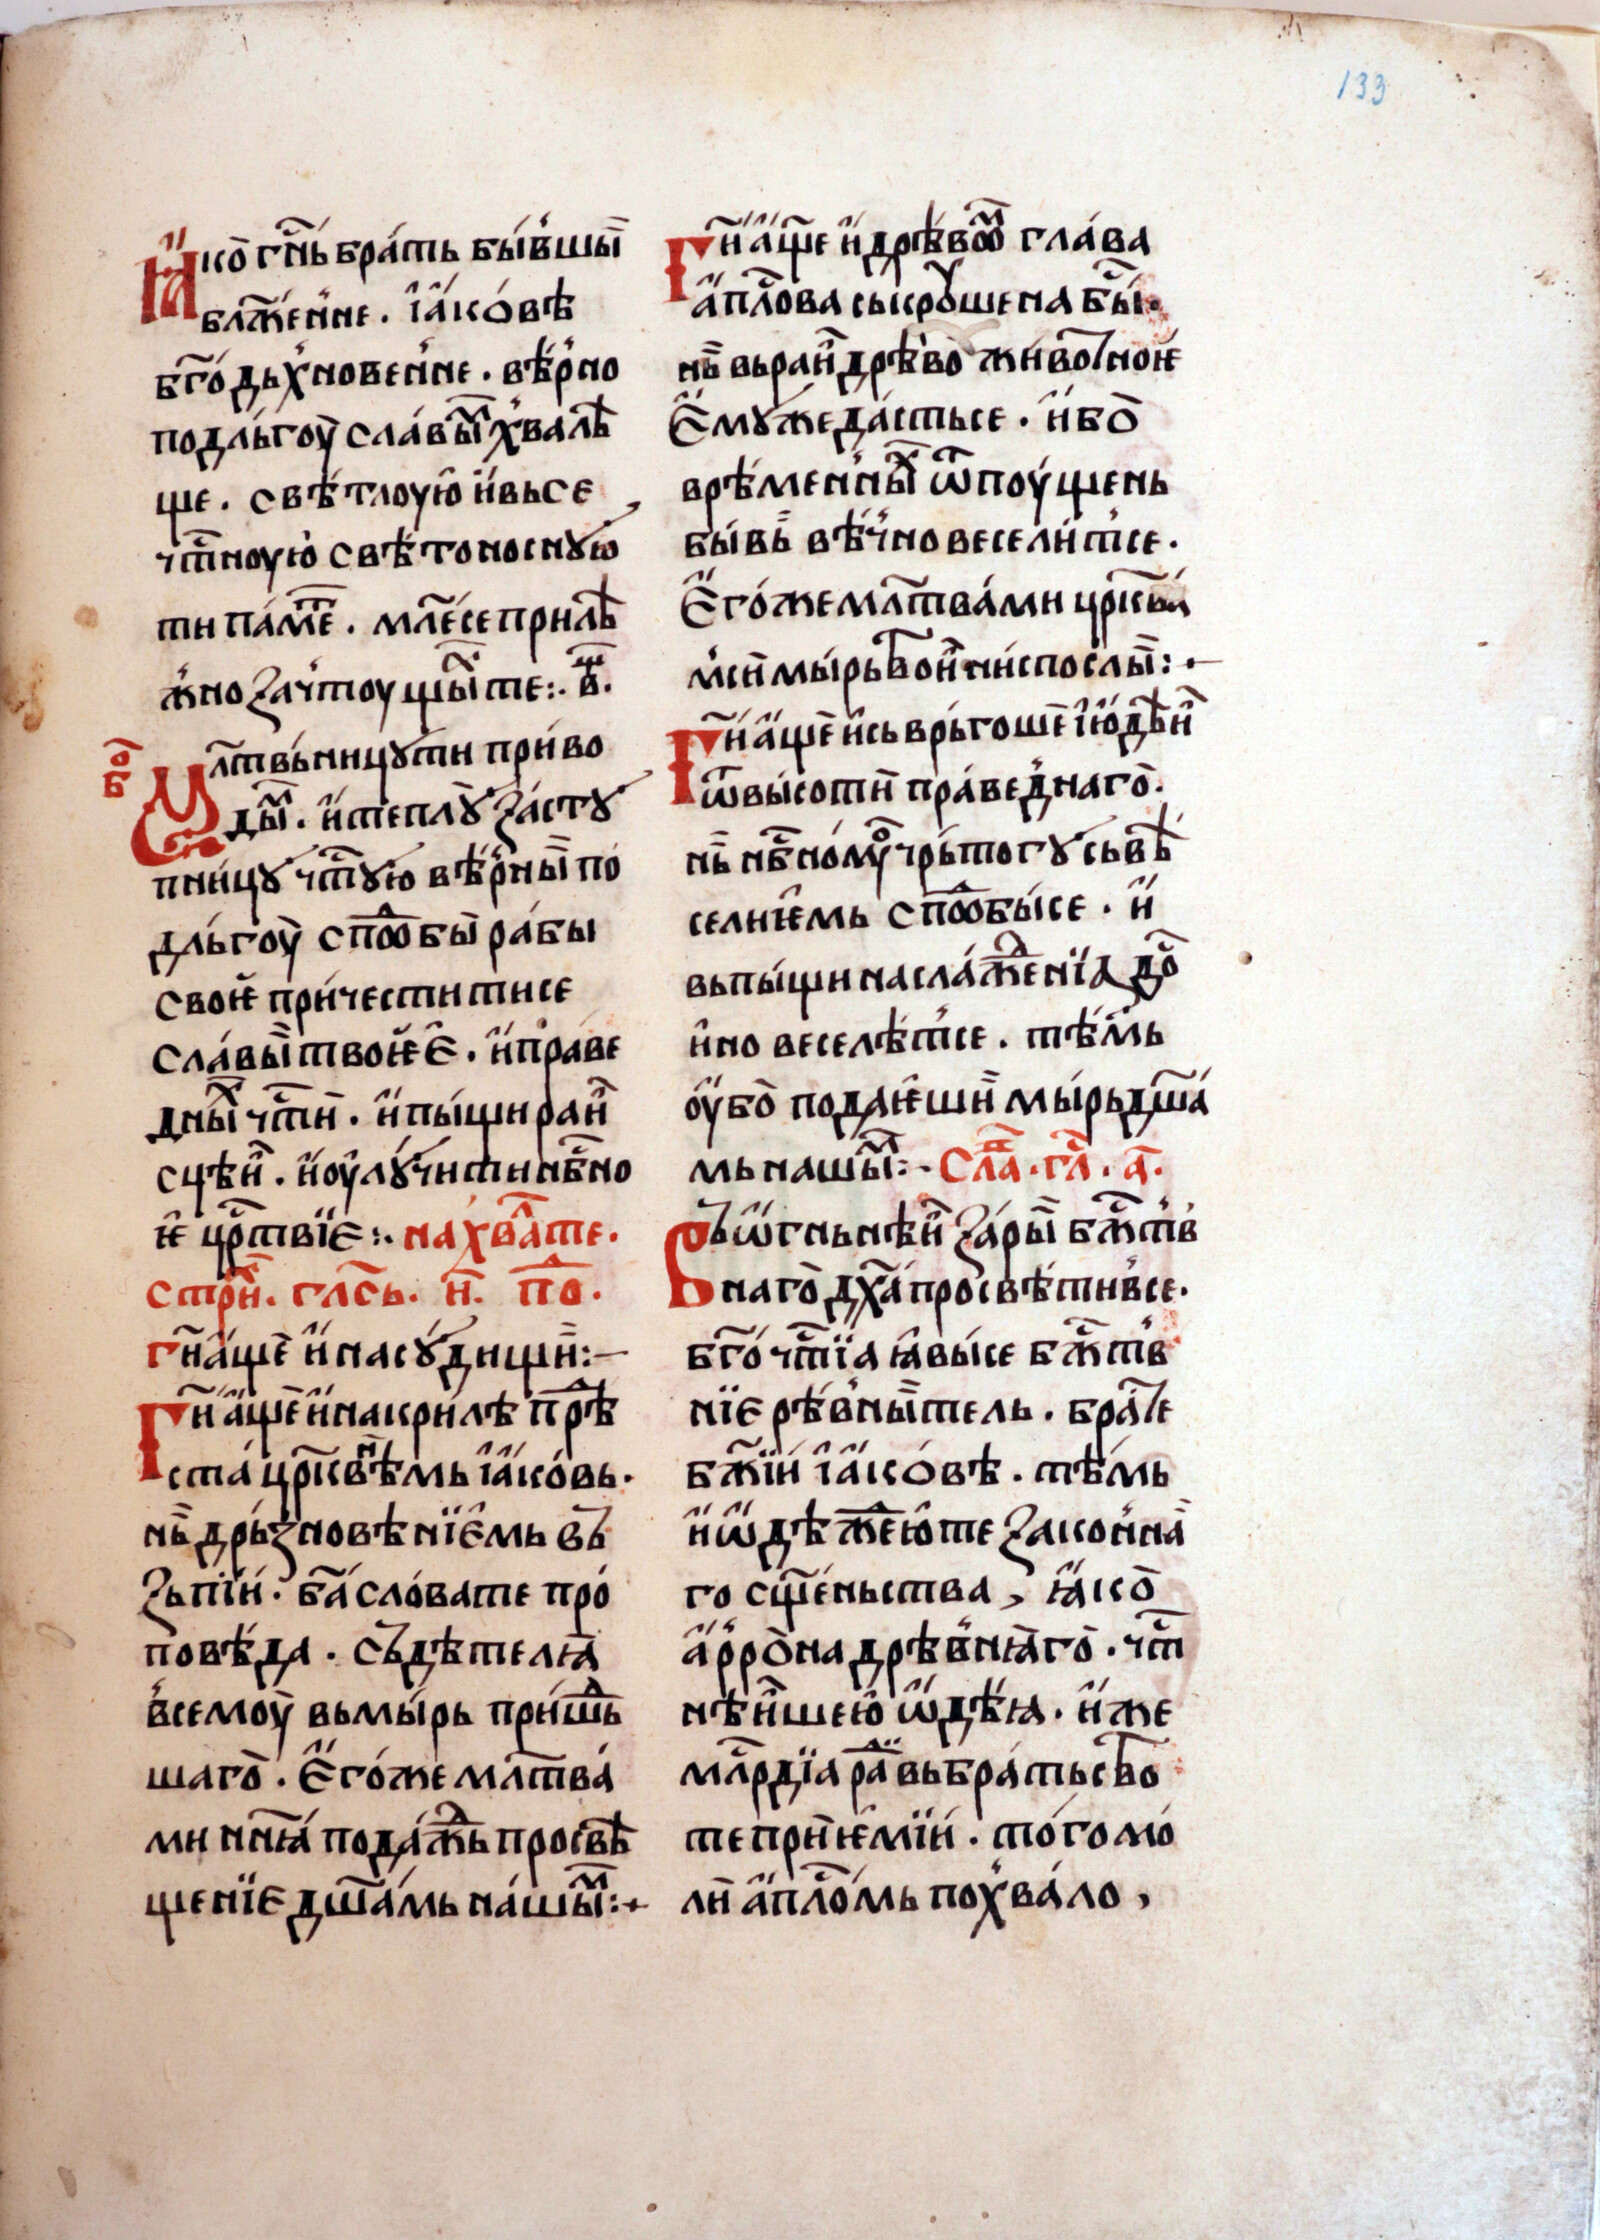 133
Ꙗ҆ко̀ гн҇ь бра́ть бы́вшы
блж҃е́нне. і҆а҆ко́вѣ
бг҃одьхновенне. вѣ́рно
подльгоу̀ сла́вы хвалѣ
ще. свѣ́тлоую и҆ вьсе
чт҇ноую̀ свѣтоносную
ти па́ме. мл҃е́се прилѣ
жно зачтоущы те:. в҃.
бо
Мл҃твь́ницу ти приво
ды. и҆ теплꙋ̀ за́сту
пни́цу чт҇ую вѣ́рны по
дль́гоу̀ спо́бы ра́бы
свое҆ приче́стити се
сла́вы твоѥ҆е҆. и҆ пра́ве
дны чт҇и. и҆ пы́щи раи҆
сцѣи҆. и҆ оу҆лꙋ́чити нб҇но
ѥ҆ цр҇твїе:. на хва́ те.
стр҃и. гла҇сь. и҃. по.
гн҃а́ще и҆ на сꙋ́дищи:–
Гн҃а҆ще и҆ на крилѣ прѣ
ста́ цр҃квнѣмь і҆а҆ко́вь.
нь дрь́зновѣнїе҆мь въ
зьпі́и. ба҃слова те про́
повѣ́да. съ́дѣтелꙗ
всемоу̀ вь мы́рь при́шь
шаго̀. Е҆го́же мл҃тва́
ми нн҃ꙗ пода́жь просвѣ
щенїе дш҃а́мь на́шы:+
Гн҃а҆ще и҆ дрѣ́во глава
а҆пл҇ова ськроу́шена бы́.
нь вь раи҆ дрѣ́во̀ живо́тноѥ
Е҆мꙋже да́стьсе. и҆бо̀
врѣ́менны ѿпоу́щень
бы́вь вѣ́чно весели́тсе.
Е҆го́же мл҃тва́ми цр҃квы́
мси мы́рьвои҆ ниспослы̀:+
Гн҃а҆ще и҆сьврь́гоше і҆ю҆дѣи҆
ѿ высоти̑ пра́веднаго̀.
нь нб҇но́мꙋ чрь́тогꙋ сьвѣ
селнїе҆мь спо́бы́се. и҆
вь пы́щи насла́женїа до
и҆но веселѣ́тсе. тѣ́мь
оу҆бо̀ подаѥ҆ши мы́рь дш҃а́
мь нашы́:· Сла҃. гл҃. а҃.
Въ ѡ҆гньнѣи҆ за́ры̀ бж҇тв
наго̀ дх҃а̀ просвѣти́все.
бг҃о чт҇їа ꙗ҆вы́се бж҇тв
нїе рѣвны́тель. бра́те
бж҃їи і҆а҆ко́вѣ. тѣ́мь
и҆ ѡ҆дѣже́ю те законна́
го сщ҃е́ньства, ꙗ҆ко̀
а҆ррѡ́на дрѣ́внꙗго̀. чт҇
нѣи҆шею ѡ҆дѣ́ꙗ. и҆же
мл҇рдїа ра́ вь бра́тьство
те приѥ҆мїи. то́го мо́
ли а҆пл҇о́мь похва́ло,